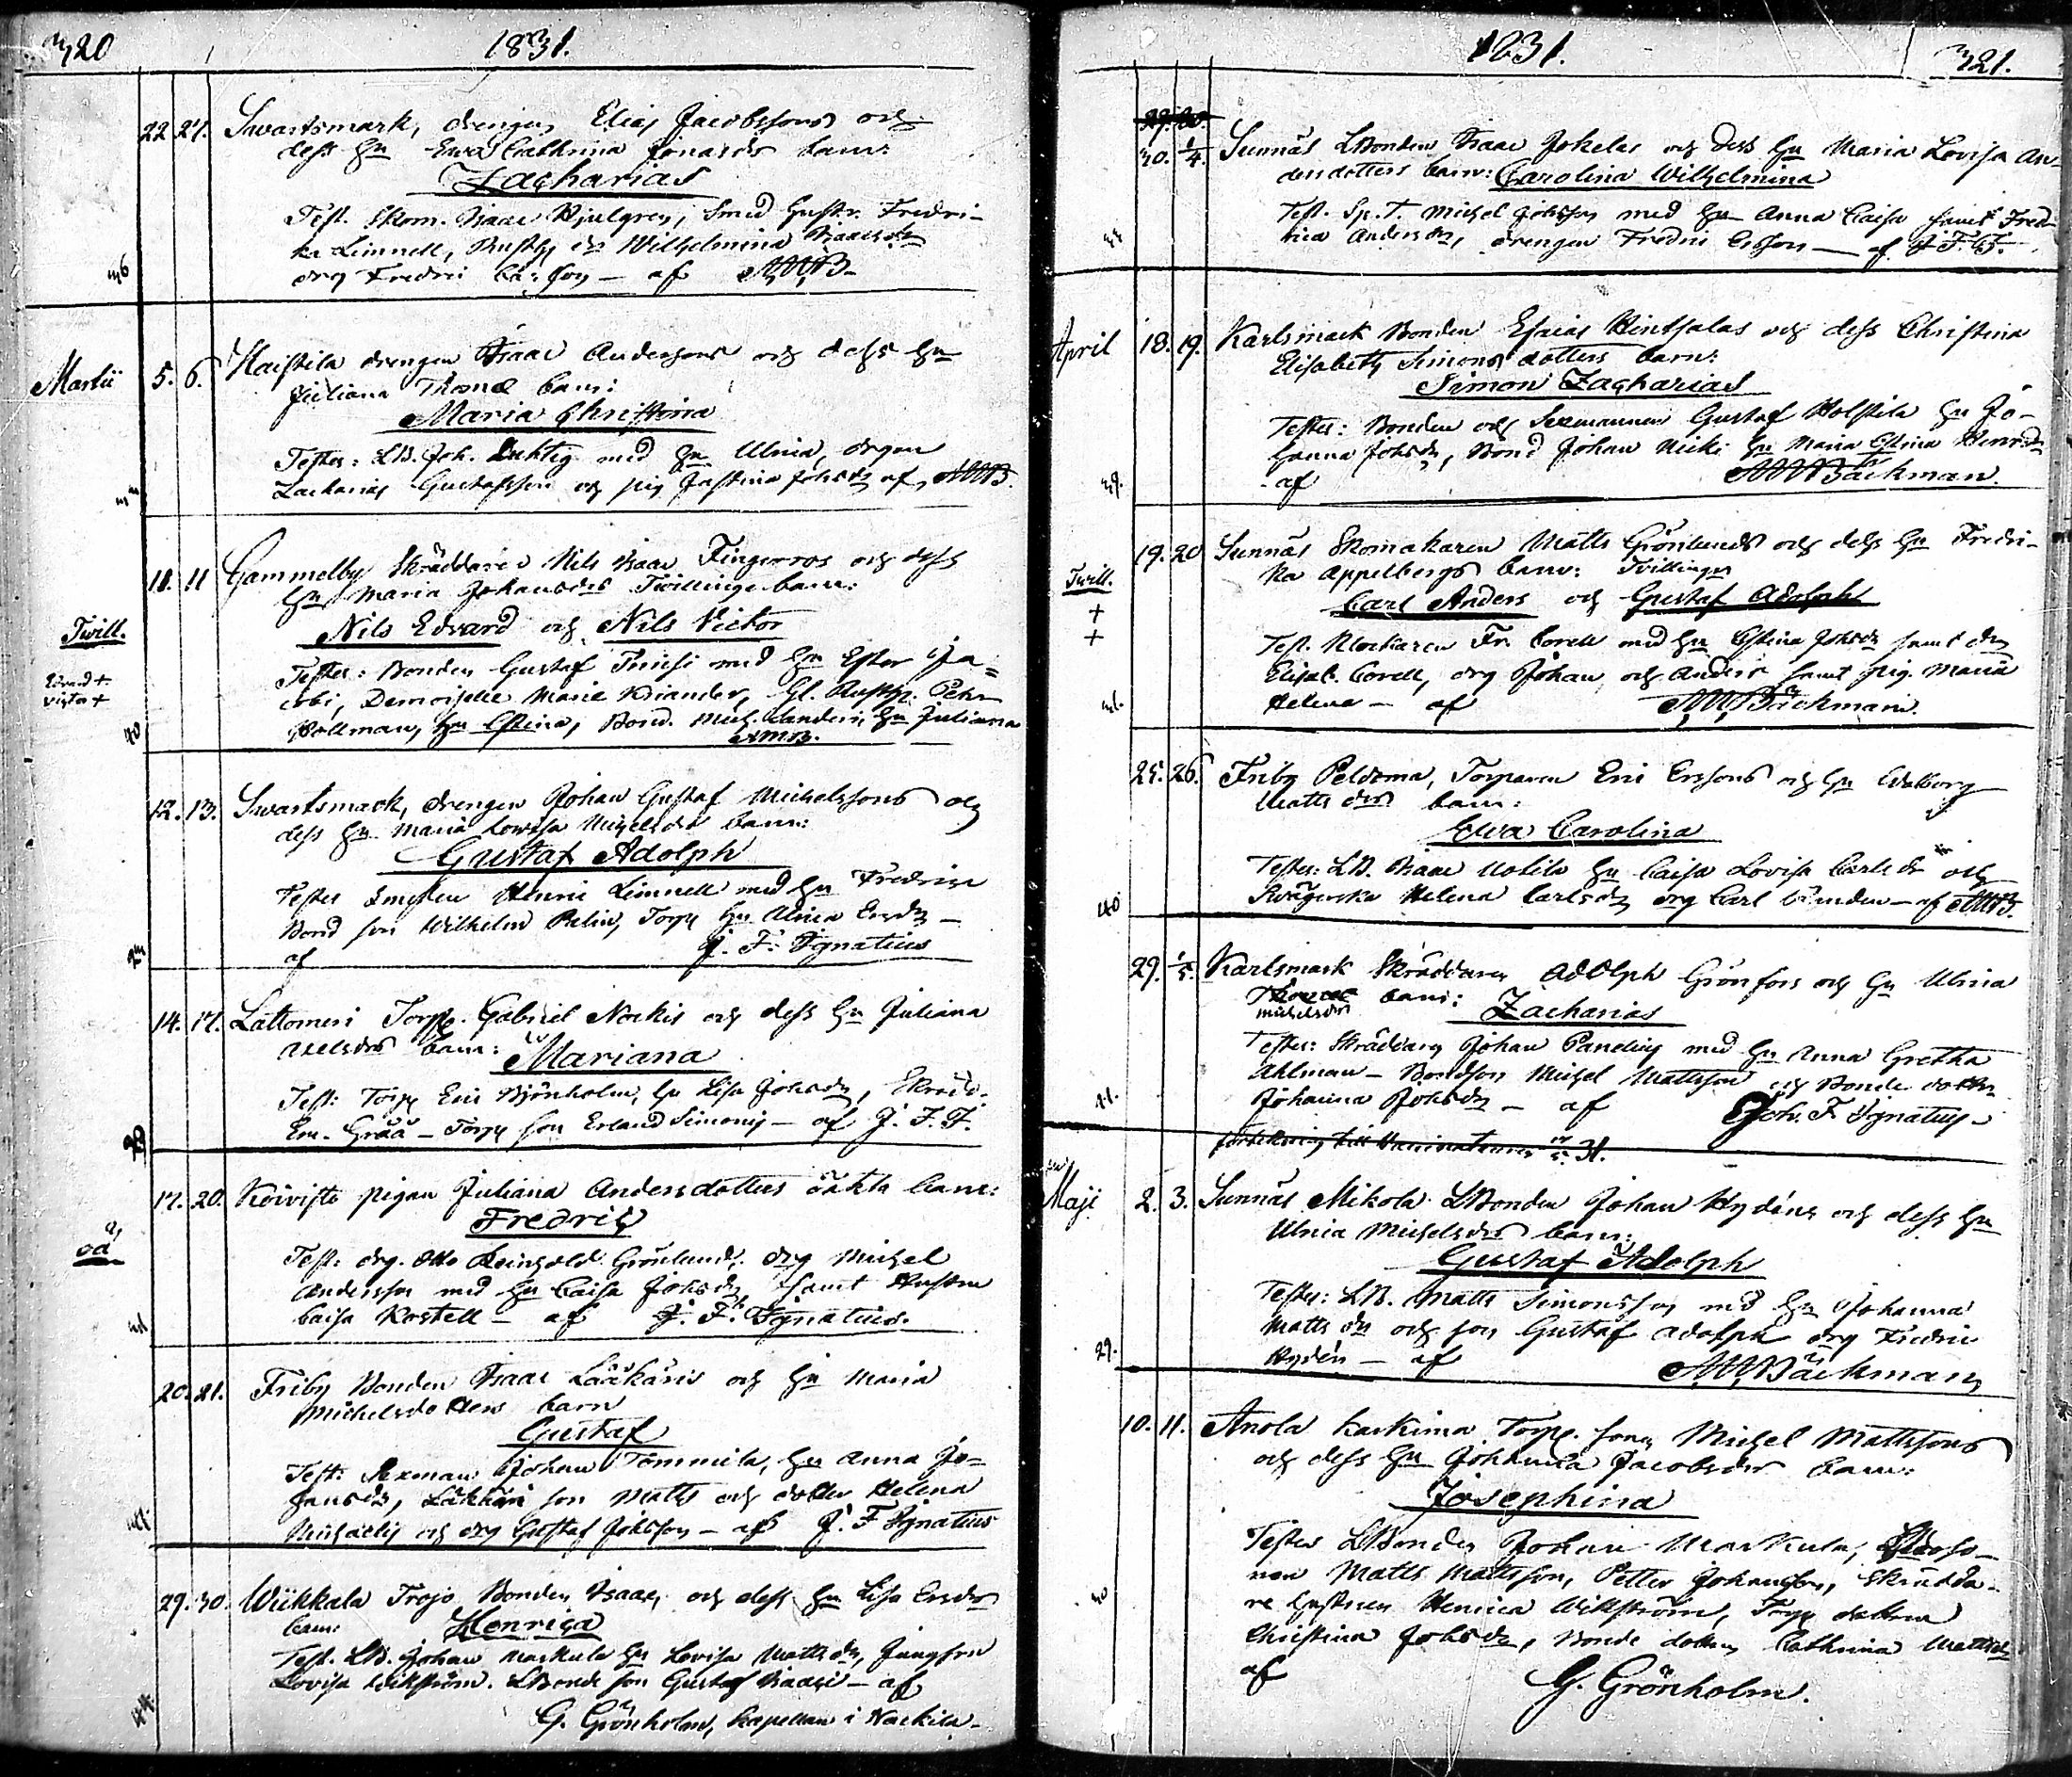 320 1831.
22 27. Swartsmark, drengen Elias Jacobssons och
dess hu Ewa Cathrina Jonasdr barn:
Zacharias
Test. Skom. Isaac Hjulgren, Smed Gust. Fredri-
ka Limnell, Wilhelmina Isaacsdr
drg Fredric - af AMB
Martii 5. 6. Haistila drengen Isaac Anderssons och dess hu
Juliana Thomæ barn:
Maria Christina
Testes: LB. Joh. Luktig med hu Ulrica, drgen
Zacharias Gustafsson och pig Justina Johsdr af AMB.
11 Gammelby Skräddaren Nils Isaac Fingerroos och dess
hu Maria Johansdrs Twillinge barn:
Twill. Nils Edvard och Nils Victor
Edvard +
Victor +
Testes: Bonden Gustaf med hu Ester Ja-
cobi, Demoiselle Maria Kiander, Gl. Petr
Hollman, hu Cstina, Bond. Mich. hu Juliana
AMB.
40
12. 13. Swartsmark, drengen Johan Gustaf Michelssons och
dess hu Maria Lowisa Michelsdrs barn:
Gustaf Adolph
Testes Smeden Henric Limnell med hu Fredrica
Bond son Wilhelm Palin, Torp hu Ulrica Ersdr -
af J. F. Ignatius
14. 17. Lattomeri Torp. Gabriel Nockis och dess hu Juliana
Axelsdrs barn: Mariana
Test: Torp Eric Björnholm, hu Lisa Johsdr, Skrädd.
Er. Grää - Torp son Erland Simonis - af J. F. I.
17. 20. Koivisto pigan Juliana Andersdotters oäkta barn:
Fredric
oä
Test: drg. Otto Reinhold Grönlund, drg Michel
Andersson med hu Caisa Johsdr, samt Hustru
Caisa Rostell - af J. F. Ignatius.
20. 21. Friby Bonden Isaac Lääkäris och hu Maria
Michelsdotters barn
Gustaf
Test: Sexman Johan Tommila, hu Anna Jo-
hansdr, Läkkäri son Matts och dotter Helena
Michaelis och drg Gustaf Johsson - af J. F Ignatius
29. 30. Wiikkala Trojo Bonden Isaacs och dess hu Lisa Ersdr
barn: Henrica
Test. LB. Johan Markula hu Lovisa Mattsdr, Jungfru
Lovisa Wikström. LBonde son Gustaf Isaaci - af
G. Grönholm, Kapellan i Nackila.
1831. 321.
30. 1/4. Sunnäs LBonden Isaac Jokelas och dess hu Maria Lovisa An-
dersdotters barn: Carolina Wilhelmina
Test. Sp. T. Michel Johsson med hu Anna Caisa samt Fred-
rica Andersdr, drengen Fredric Ersson - af J. F. I.
April 18. 19. Karlsmark Bonden Esaias Hintsalas och dess Christina
Elisabeth Simonsdotters barn:
Simon Zacharias
Testes: Bonden och Sexmannen Gustaf Holstila hu Jo-
hanna Johsdr, Bond Johan Nicki hu Maria Cstina Henricsdr
af AMBäckman.
19. 20 Sunnäs Skomakaren Matts Grönlunds och dess hu Fredri-
ka Appelbergs barn: Tvillingar
Twill. Carl Anders och Gustaf Adolph
+
+
Test. Klockaren Fr. Corell med hu Cstina Johsdr samt
Elisab. Corell, drg Johan och Anders samt pig. Maria
Helena - af AMBäckman.
25. 26. Friby Peldoma, Torparen Eric Erssons och hu Walborg
Mattsdrs barn:
Ewa Carolina
Testes: LB. Isaac Uotila hu Caisa Lovisa Carlsdr och
Swägerska Helena Carlsdr drg Carl - af AMB.
40
29. 1/5. Karlsmark Skräddaren Adolph Grönfors och hu Ulrica
Michelsdrs barn: Zacharias
Testes: Skräddaren Johan Pandin med hu Anna Gretha
Ahlman - Bondson Michel Mattsson och Bonde dotter
Johanna Johsdr - af Joh. F Ignatius
41.
31.
Maji 2. 3. Sunnäs Mikola LBonden Johan Hydéns och dess hu
Ulrica Michelsdrs barn:
Gustaf Adolph
Testes: LB. Matts Simonsson med hu Johanna
Mattsdr och son Gustaf Adolph drg Fredric
Hydén - af AMBäckman
29.
10. 11. Anola Karkima Torp. sonen Michel Mattssons
och dess hu Johanna Jacobsdrs barn:
Josephina
Testes LBonden Johan Markula,
Matts Mattsson, Petter Johansson, Skrädda-
re hustrun Henrica Wikström, Torp dottren
Christina Johsdr, Bonde dottren Cathrina Mattsdr
af G. Grönholm.